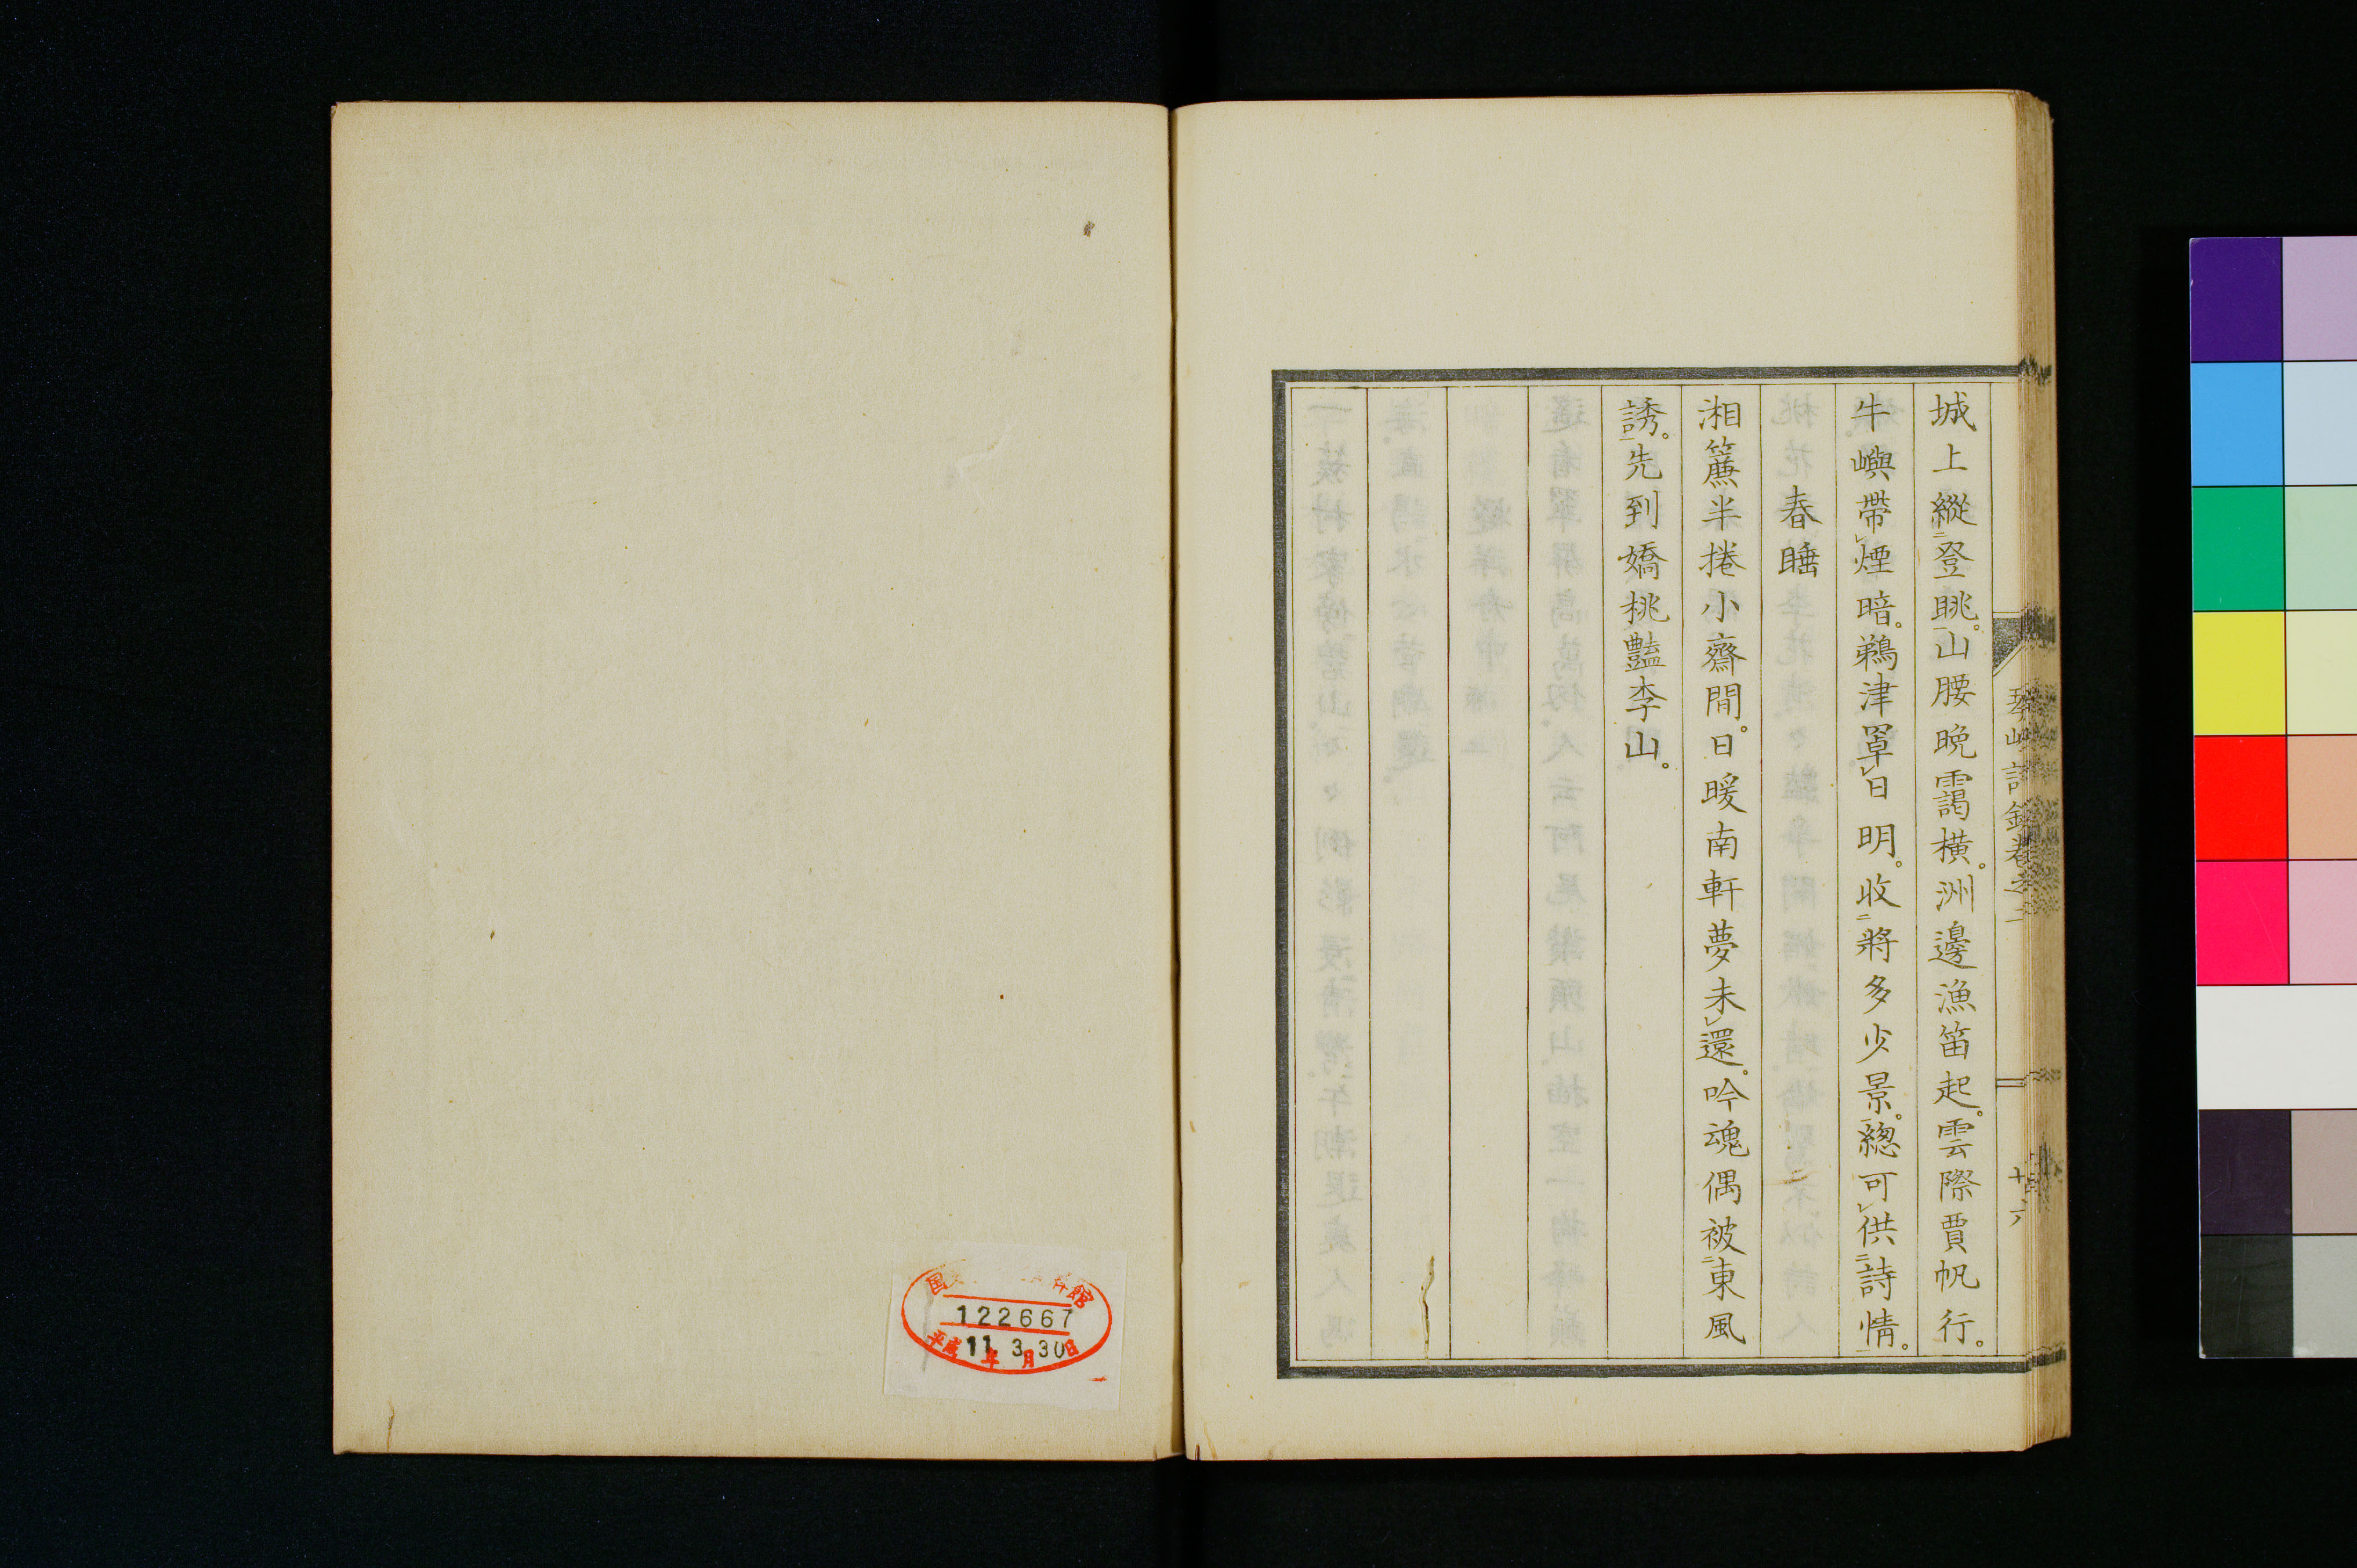 城上縱二登眺一。山腰晚靄橫。洲邊漁笛起。雲際賈帆行。
牛嶼帶レ煙暗。鵜津罩レ日明。收二將多少景一。總可レ供二詩情一。
春睡
湘簾半捲小齋閒。日暖南軒夢未レ還。吟魂偶被二東風
誘一。先到嬌桃豔李山。
琴山詩鈔卷之二
十六
122667
平成11年3月30日